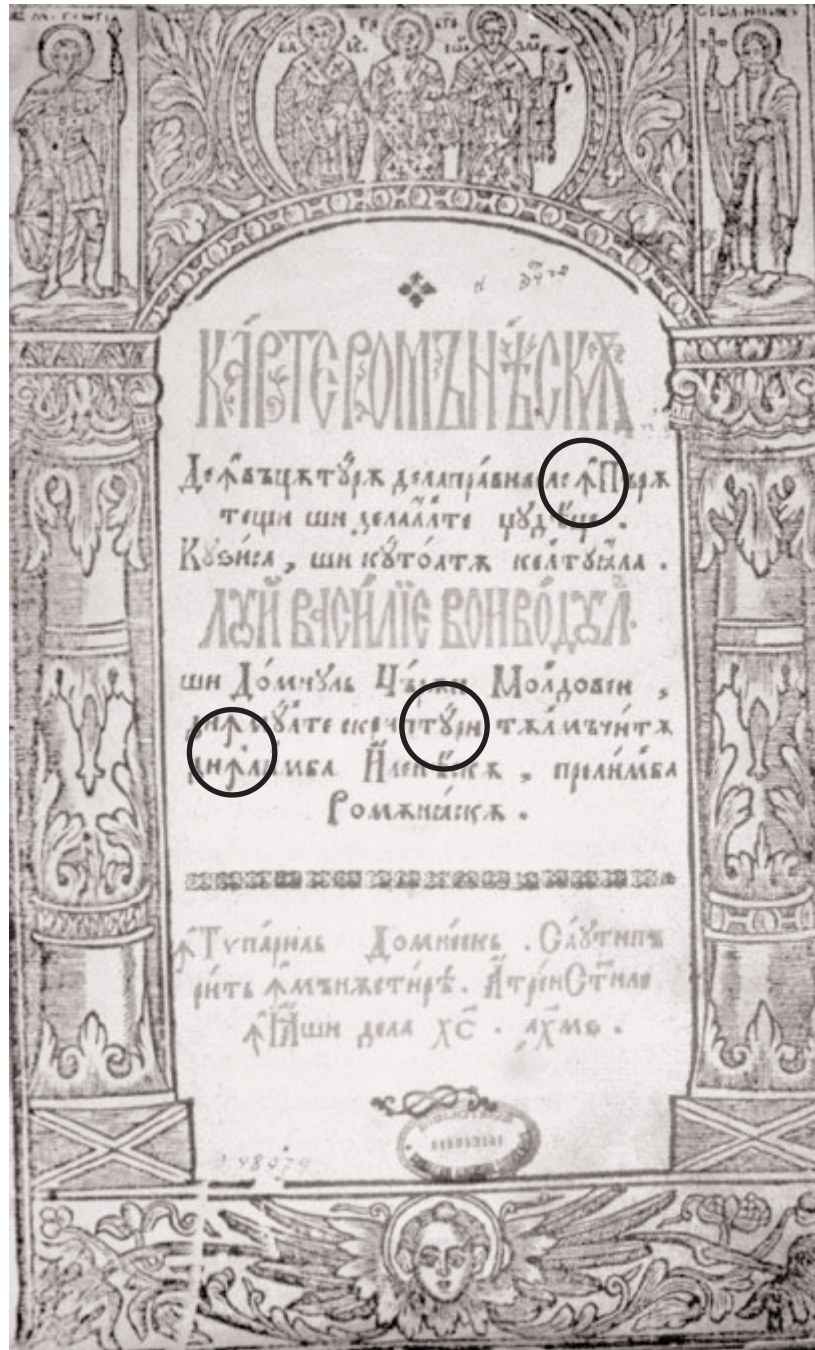 КА́РТЕ РОМЪНѢ́СКѪ
Деꙟвъцѫтꙋ́рѫ делапра́виле ꙟ̂Пърѫ
тещи ши делаа́лте
Кꙋзи́са, ши кꙋто́атѫ келтꙋѧ́ла.
ЛꙊЙ ВАСИ́ЛЇЕ ВОИВО́ДꙊЛ
ши До́мнꙋль Цъ́рѫи Молдовеи,
динмꙋ́лте скриптꙋ́ри тѫлмъчи́тѫ
динли́мба Илен҄ѣскѫ, прели́мба
Ромѫнѧ́скѫ.
ꙟ̂Тѵпа́рюль Домнескь. Сꙋ́типъ
ри́ть ꙟ̂мънѫсти́рѣ. А̂тре́иСти́ле
ꙟ̂ꙖШи дела ХС. ахмѕ.